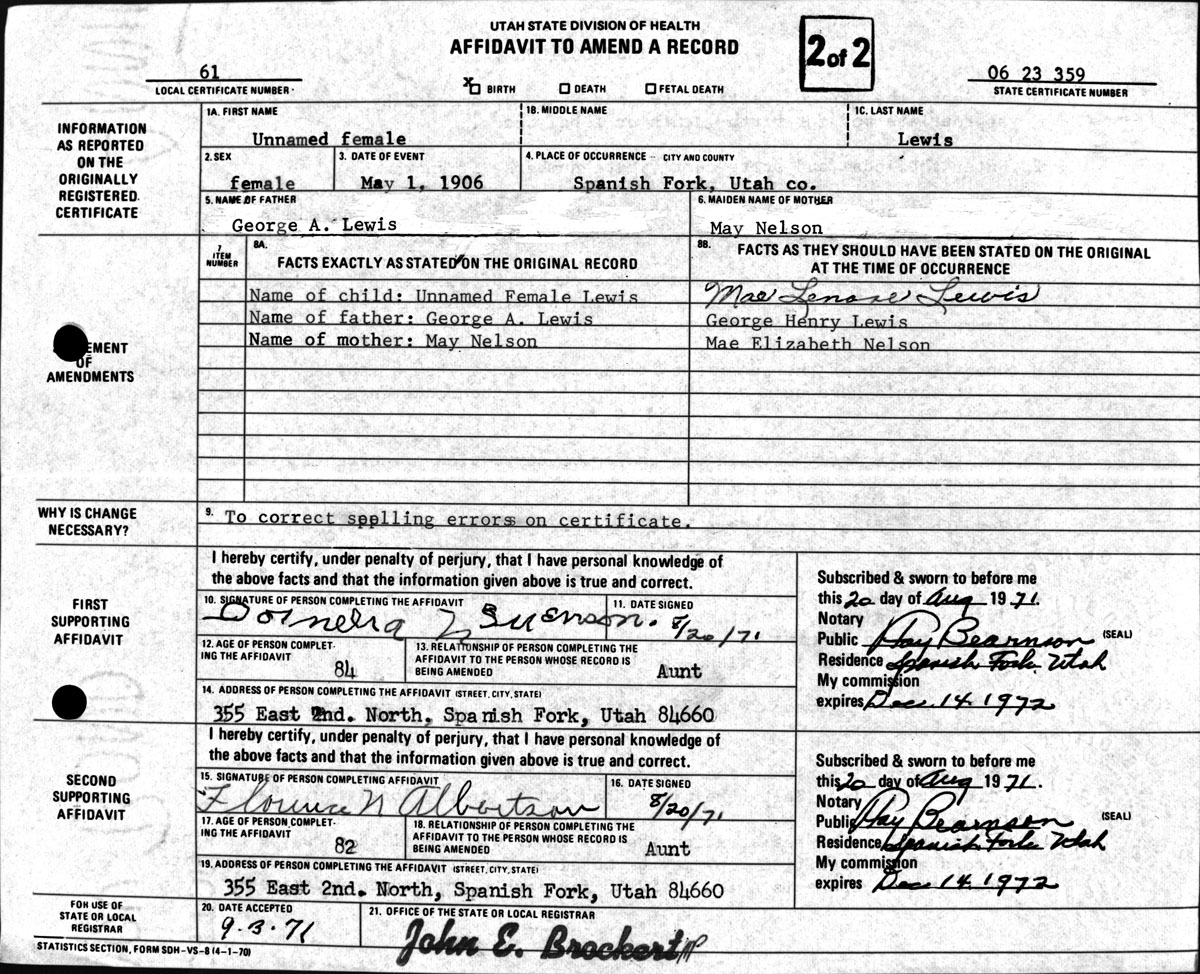 UTAH STATE DIVISION OF HEALTH
AFFIDAVIT TO AMEND A RECORD
2 of 2
61
LOCAL CERTIFICATE NUMBER
X BIRTH DEATH FETAL DEATH
06 23 359
STATE CERTIFICATE NUMBER
INFORMATION
AS REPORTED
ON THE
ORIGINALLY
REGISTERED
CERTIFICATE
1A. FIRST NAME 1B. MIDDLE NAME 1C. LAST NAME
Unnamed female Lewis
2. SEX 3. DATE OF EVENT 4. PLACE OF OCCURRENCE - CITY AND COUNTY
female May 1, 1906 Spanish Fork, Utah co.
5. NAME OF FATHER 6. MAIDEN NAME OF MOTHER
George A. Lewis May Nelson
7
ITEM
NUMBER
8A.
FACTS EXACTLY AS STATED ON THE ORIGINAL RECORD
8B. FACTS AS THEY SHOULD HAVE BEEN STATED ON THE ORIGINAL
AT THE TIME OF OCCURRENCE
EMENT
OF
AMENDMENTS
Name of child: Unnamed Female Lewis Mae Lenore Lewis
Name of father: George A. Lewis George Henry Lewis
Name of mother: May Nelson Mae Elizabeth Nelson
WHY IS CHANGE
NECESSARY?
9. To correct spelling errors on certificate.
FIRST
SUPPORTING
AFFIDAVIT
I hereby certify, under penalty of perjury, that I have personal knowledge of
the above facts and that the information given above is true and correct.
10. SIGNATURE OF PERSON COMPLETING THE AFFIDAVIT 11. DATE SIGNED
8/20/71
12. AGE OF PERSON COMPLET-
ING THE AFFIDAVIT
84
13. RELATIONSHIP OF PERSON COMPLETING THE
AFFIDAVIT TO THE PERSON WHOSE RECORD IS
BEING AMENDED
Aunt
14. ADDRESS OF PERSON COMPLETING THE AFFIDAVIT (STREET, CITY, STATE)
355 East 2nd. North, Spanish Fork, Utah 84660
Subscribed & sworn to before me
this 20 day of Aug 1971.
Notary
Public Ray Bearnson (SEAL)
Residence Spanish Fork Utah
My commission
expires Dec. 14. 1972
SECOND
SUPPORTING
AFFIDAVIT
I hereby certify, under penalty of perjury, that I have personal knowledge of
the above facts and that the information given above is true and correct.
15. SIGNATURE OF PERSON COMPLETING AFFIDAVIT 16. DATE SIGNED
Florence N Albertson 8/20/71
17. AGE OF PERSON COMPLET-
ING THE AFFIDAVIT
82
18. RELATIONSHIP OF PERSON COMPLETING THE
AFFIDAVIT TO THE PERSON WHOSE RECORD IS
BEING AMENDED
Aunt
19. ADDRESS OF PERSON COMPLETING THE AFFIDAVIT (STREET, CITY, STATE)
355 East 2nd. North, Spanish Fork, Utah 84660
Subscribed & sworn to before me
this 20 day of Aug 1971.
Notary
Public Ray Bearnson (SEAL)
Residence Spanish Fork Utah
My commission
expires Dec 14. 1972
FOR USE OF
STATE OR LOCAL
REGISTRAR
20. DATE ACCEPTED 21. OFFICE OF THE STATE OR LOCAL REGISTRAR
9.3.71 John E. Brockert
STATISTICS SECTION, FORM SDH-VS-8 (4-1-70)